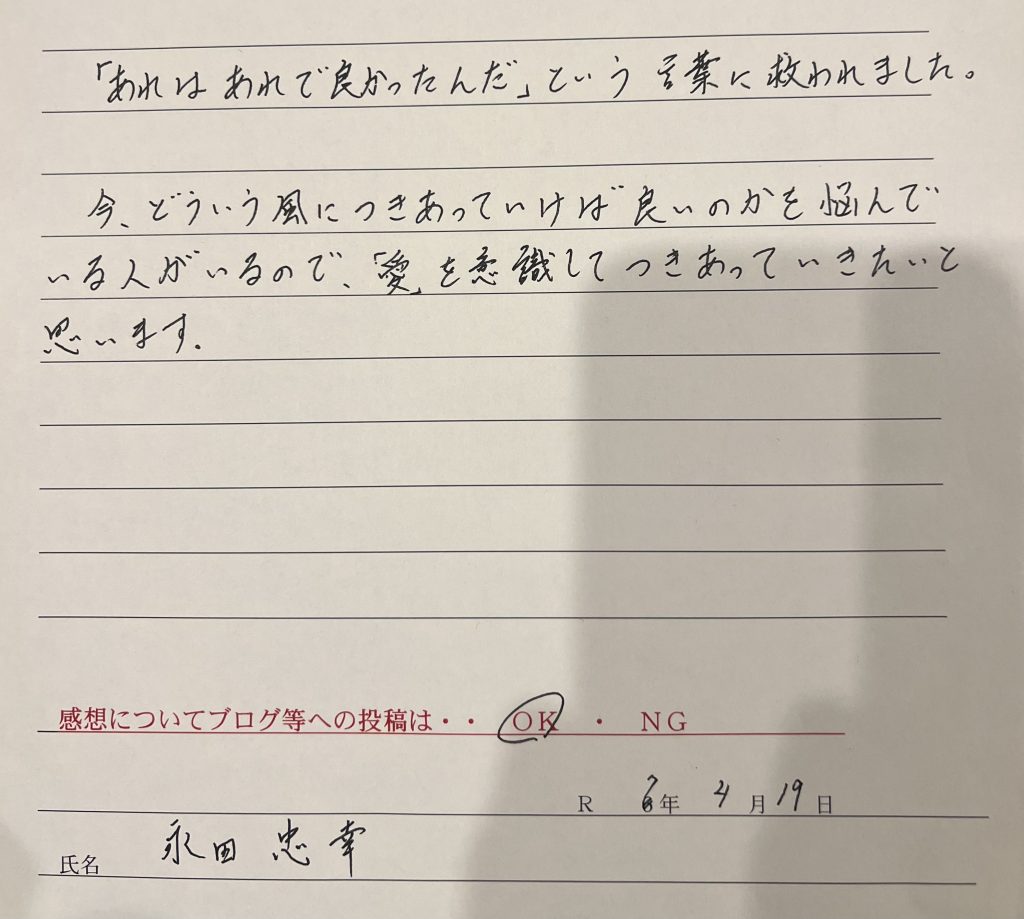 「あれはあれで良かったんだ」という言葉に救われました。
今、どういう風につきあっていけば良いのかを悩んで
いる人がいるので、「愛」を意識してつきあっていきたいと
思います.
感想についてブログ等への投稿は・・ OK ・ NG
R 年 4月19日
氏名 永田 忠幸